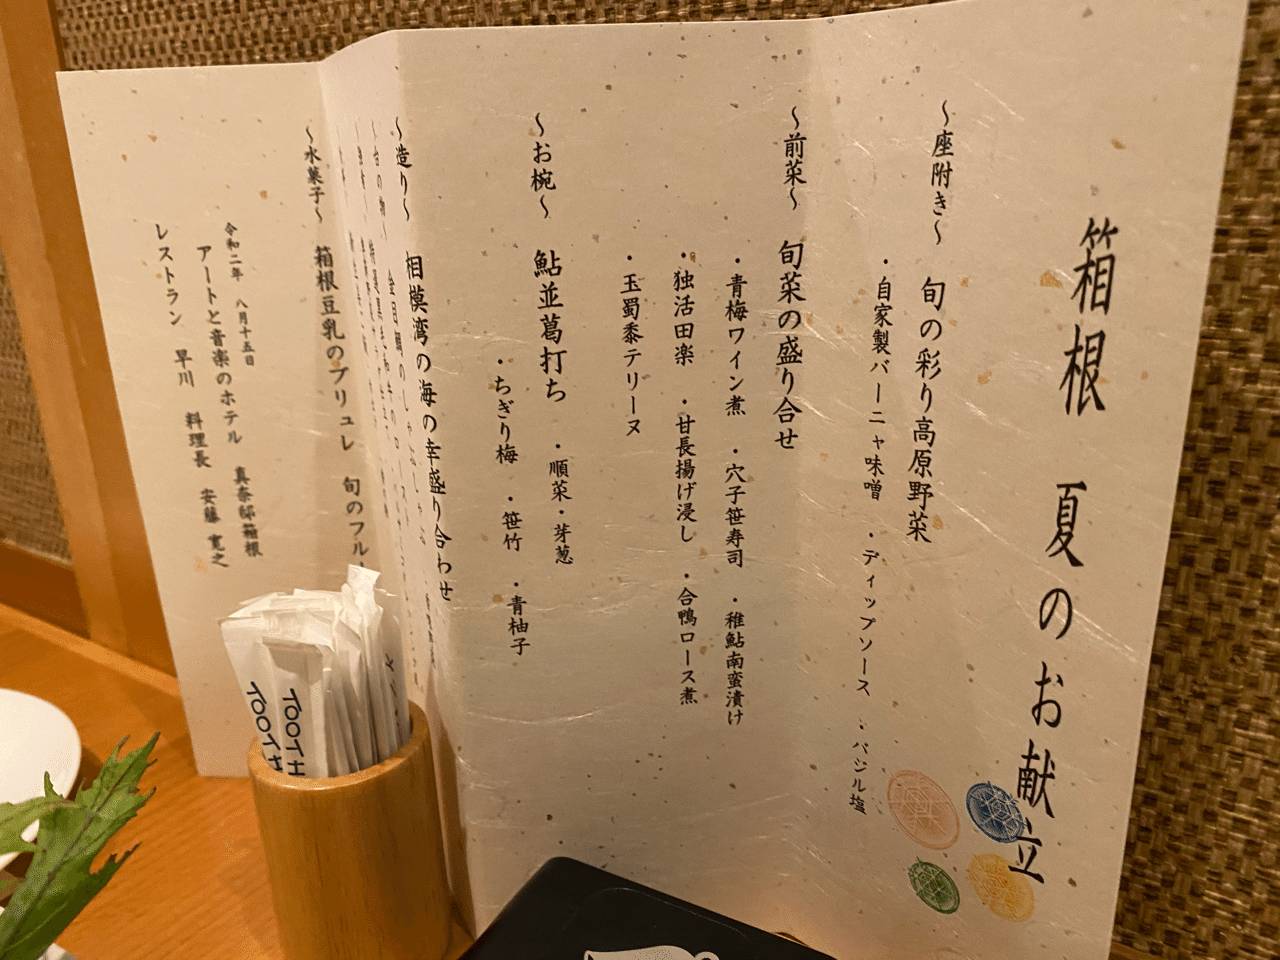 箱根 夏のお献立
〜座附き〜 旬の彩り高原野菜
・自家製バーニャ味噌 ・ディップソース ・バジル塩
〜前菜〜 旬菜の盛り合せ
・青梅ワイン煮 ・穴子笹寿司 ・稚鮎南蛮漬け
・独活田楽 ・甘長揚げ浸し ・合鴨ロース煮
・玉蜀黍テリーヌ
〜お椀〜 鮎並葛打ち ・順菜・芽葱
・ちぎり梅 ・笹竹 ・青柚子
〜造り〜 相模湾の海の幸盛り合わせ
〜台の物〜 金目鯛のしゃぶしゃぶ
〜水菓子〜 箱根豆乳のブリュレ 旬のフル
令和二年 八月十五日
アートと音楽のホテル 真奈邸箱根
レストラン 早川 料理長 安藤 寛之
TOOTH
TOOTH